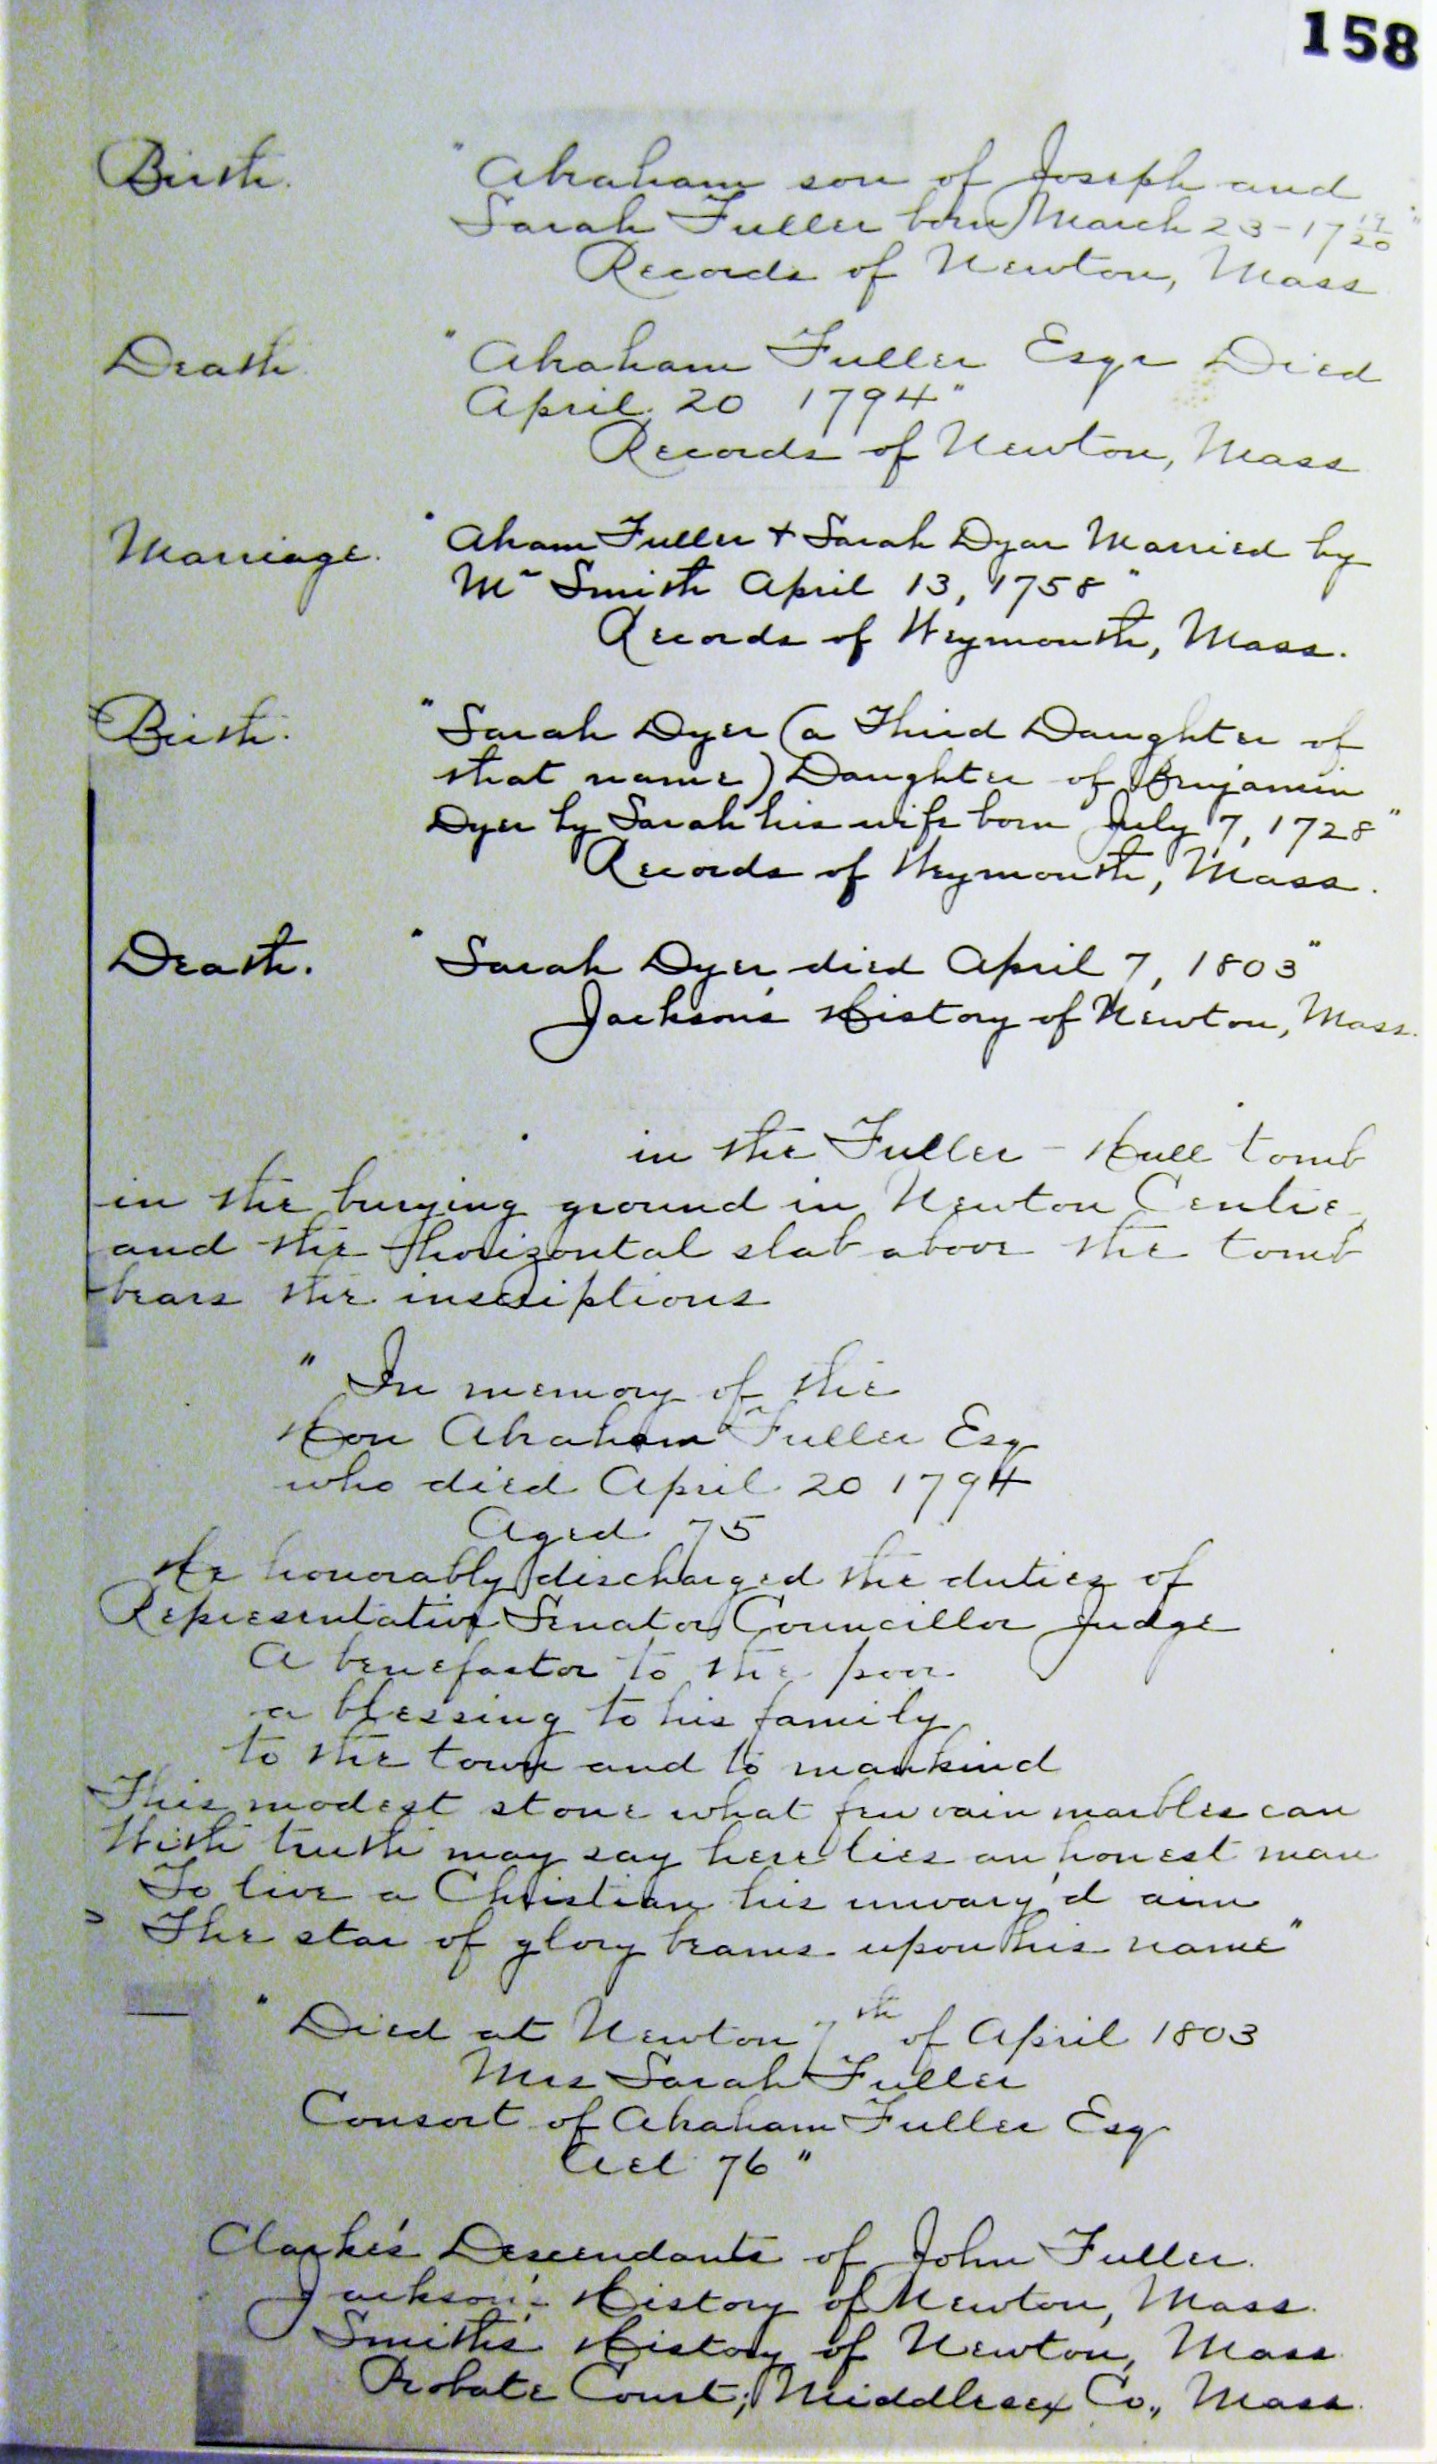 158
Birth. "Abraham son of Joseph and
Sarah Fuller born March 23-17 19/20"
Records of Newton, Mass
Death. "Abraham Fuller Esqr Died
April 20 1794"
Records of Newton, Mass
Marriage. "Abam Fuller + Sarah Dyar Married by
Mr Smith April 13, 1758"
Records of Weymouth, Mass.
Birth. "Sarah Dyer (a Third Daughter of
that name) Daughter of Benjamin
Dyer by Sarah his wife born July 7, 1728"
Records of Weymouth, Mass.
Death. "Sarah Dyer died April 7, 1803"
Jackson's History of Newton, Mass.
in the Fuller - Hull tomb
in the burying ground in Newton Centre
and the horizontal slab above the tomb
bears the inscriptions
"In memory of the
Hon Abraham Fuller Esq
who died April 20 1794
Aged 75
He honorably discharged the duties of
Representative Senator Councillor Judge
A benefactor to the poor
a blessing to his family
to the town and to mankind
This modest stone what few vain marbles can
With truth may say here lies an honest man
To live a Christian his unvary'd aim
The star of glory beams upon his name"
"Died at Newton 7th of April 1803
Mrs Sarah Fuller
Consort of Abraham Fuller Esq
Aet 76"
Clarke's Descendants of John Fuller.
Jackson's History of Newton, Mass.
Smith's History of Newton, Mass
Probate Court; Middlesex Co., Mass.